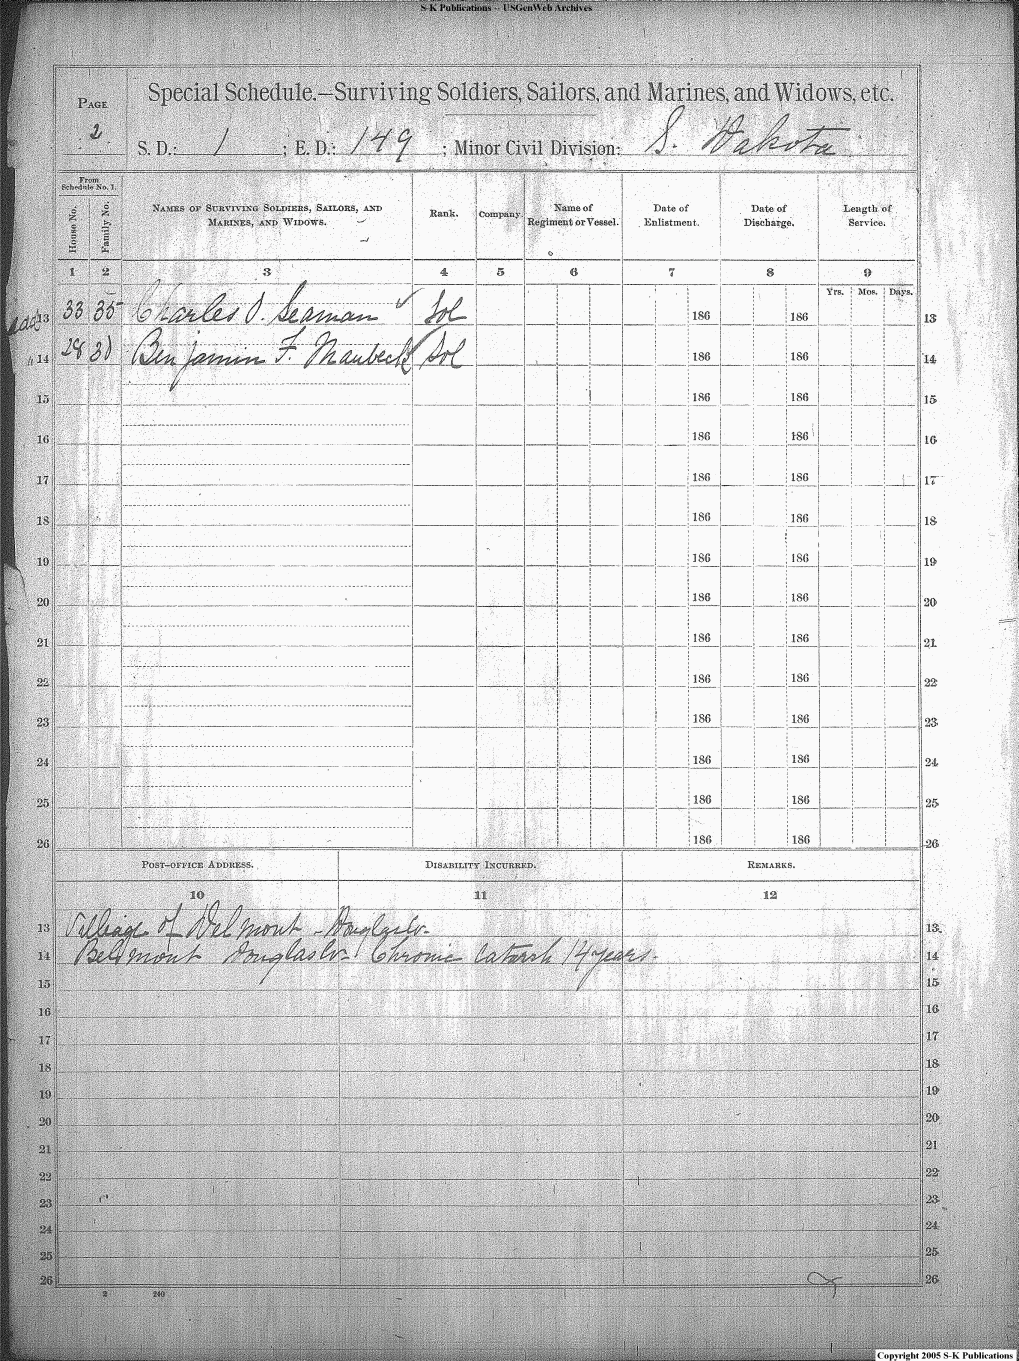 S-K Publications -- USGenWeb Archives
PAGE
2
Special Schedule.—Surviving Soldiers, Sailors, and Marines, and Widows, etc.
S. D.: 1 ; E. D.: 149 ; Minor Civil Division: S. Dakota
From Schedule No. 1.
House No. Family No.
NAMES OF SURVIVING SOLDIERS, SAILORS, AND MARINES, AND WIDOWS.
Rank. Company. Name of Regiment or Vessel. Date of Enlistment. Date of Discharge. Length of Service.
1 2 3 4 5 6 7 8 9
Yrs. Mos. Days.
13 33 35 Charles O. Seaman Sol 186 186 13
14 28 Benjamin F. Sol 186 186 14
15 186 186 15
16 186 186 16
17 186 186 17
18 186 186 18
19 186 186 19
20 186 186 20
21 186 186 21
22 186 186 22
23 186 186 23
24 186 186 24
25 186 186 25
26 186 186 26
POST-OFFICE ADDRESS. DISABILITY INCURRED. REMARKS.
10 11 12
13 Village of Delmont - Douglas Co- 13
14 Delmont Douglas Co- Chronic Catarrh 14 years. 14
15 15
16 16
17 17
18 18
19 19
20 20
21 21
22 22
23 23
24 24
25 25
26 26
2 240
Copyright 2005 S-K Publications